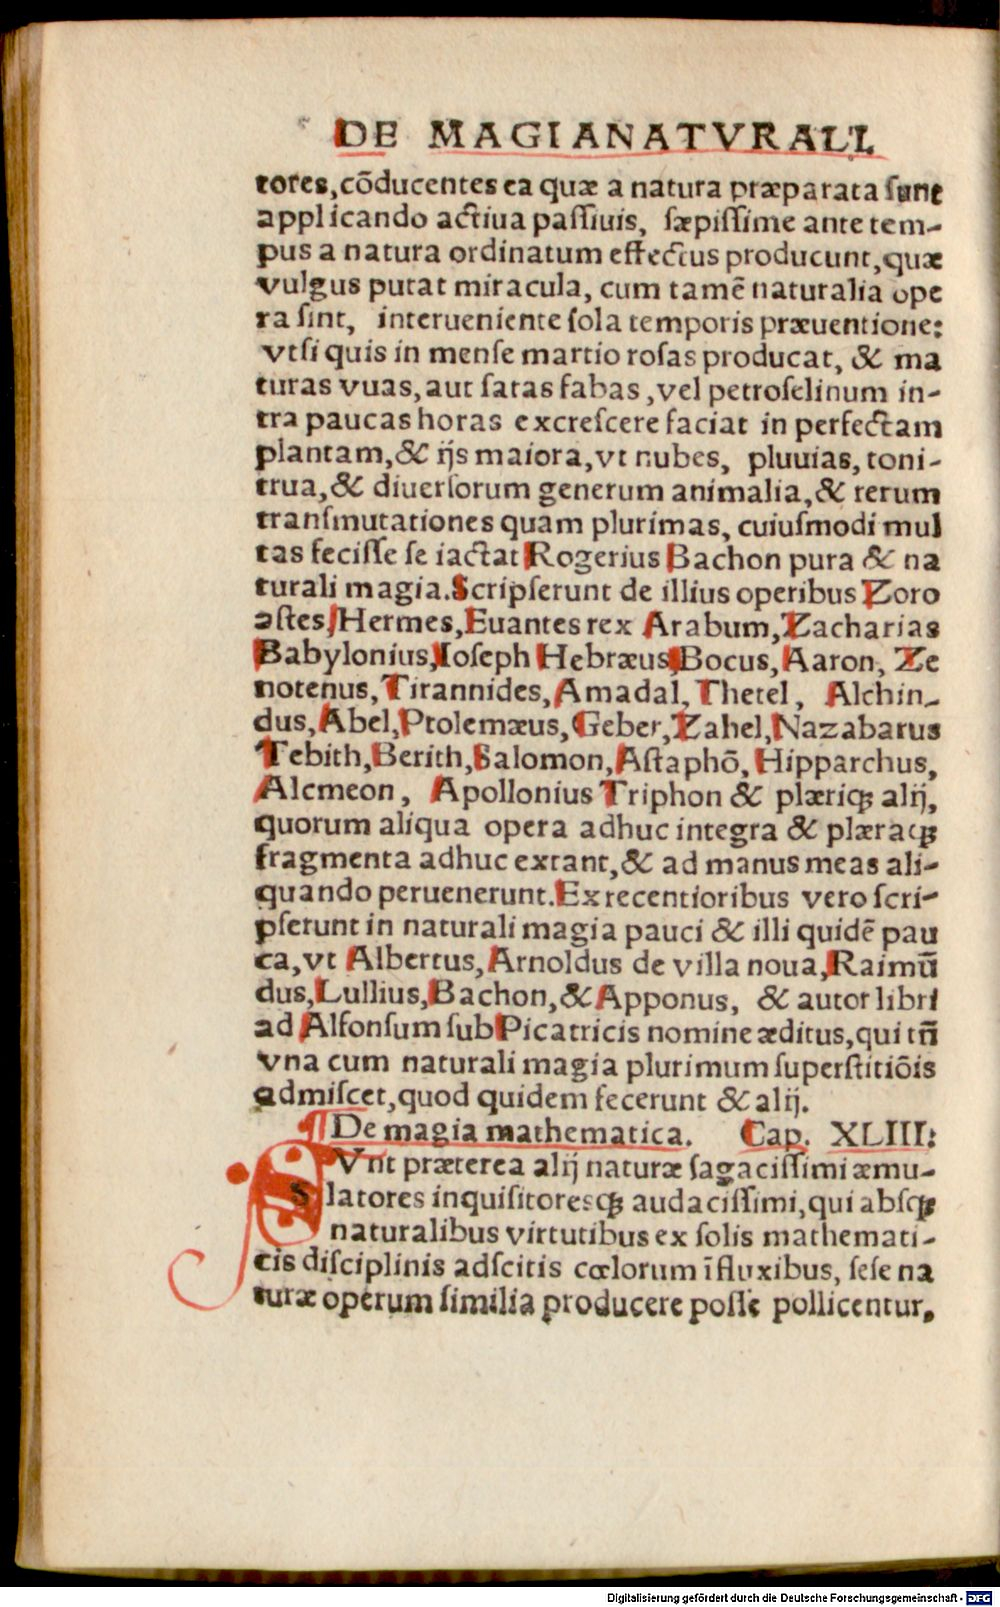 DE MAGIA NATVRALI.
tores, cōducentes ea quæ a natura præparata ſunt
applicando actiua paſſiuis, ſæpiſſime ante tem-
pus a natura ordinatum effectus producunt, quæ
vulgus putat miracula, cum tamē naturalia ope
ra ſint, interueniente ſola temporis præuentione:
vt ſi quis in menſe martio roſas producat, & ma
turas vuas, aut ſatas fabas, vel petroſelinum in-
tra paucas horas excreſcere faciat in perfectam
plantam, & ijs maiora, vt nubes, pluuias, toni-
trua, & diuerſorum generum animalia, & rerum
tranſmutationes quam plurimas, cuiuſmodi mul
tas feciſſe ſe iactat Rogerius Bachon pura & na
turali magia. Scripſerunt de illius operibus Zoro
aſtes, Hermes, Euantes rex Arabum, Zacharias
Babylonius, Ioſeph Hebræus, Bocus, Aaron, Ze
notenus, Tirannides, Amadal, Thetel, Alchin-
dus, Abel, Ptolemæus, Geber, Zahel, Nazabarus
Tebith, Berith, Salomon, Aſtaphō, Hipparchus,
Alcmeon, Apollonius Triphon & plæriqꝫ alij,
quorum aliqua opera adhuc integra & plæraqꝫ
fragmenta adhuc extant, & ad manus meas ali-
quando peruenerunt. Ex recentioribus vero ſcri-
pſerunt in naturali magia pauci & illi quidē pau
ca, vt Albertus, Arnoldus de villa noua, Raimū
dus, Lullius, Bachon, & Apponus, & autor libri
ad Alfonſum ſub Picatricis nomine æditus, qui tñ
vna cum naturali magia plurimum ſuperſtitiōis
admiſcet, quod quidem fecerunt & alij.
¶ De magia mathematica. Cap. XLIII:
SVnt præterea alij naturæ ſagaciſſimi æmu-
latores inquiſitoresqꝫ audaciſſimi, qui abſqꝫ
naturalibus virtutibus ex ſolis mathemati-
cis diſciplinis adſcitis cœlorum īfluxibus, ſeſe na
turæ operum ſimilia producere poſſe pollicentur,
Digitalisierung gefördert durch die Deutsche Forschungsgemeinschaft - DFG